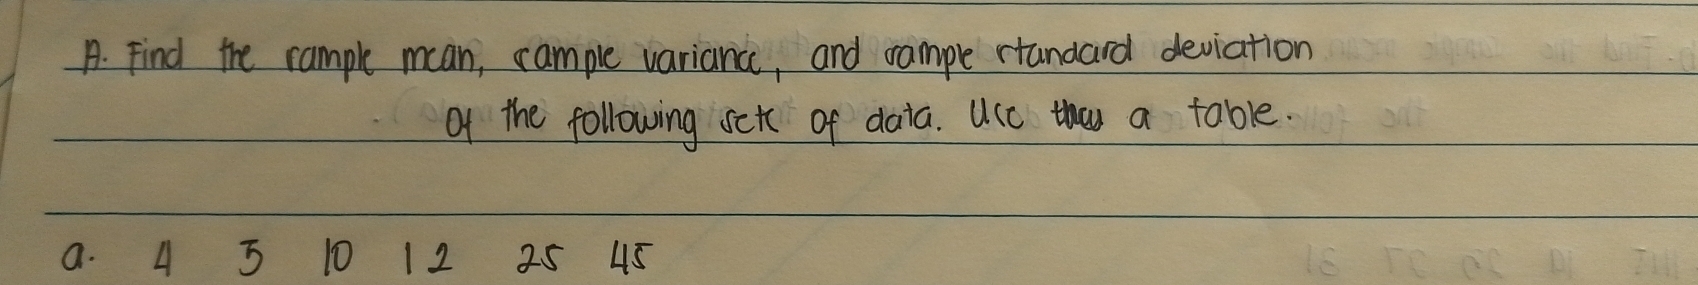 A. Find the sample mean, sample variance, and sampe standard deviation
of the following sets of data. Use a table.
a. 4 5 10 12 25 45